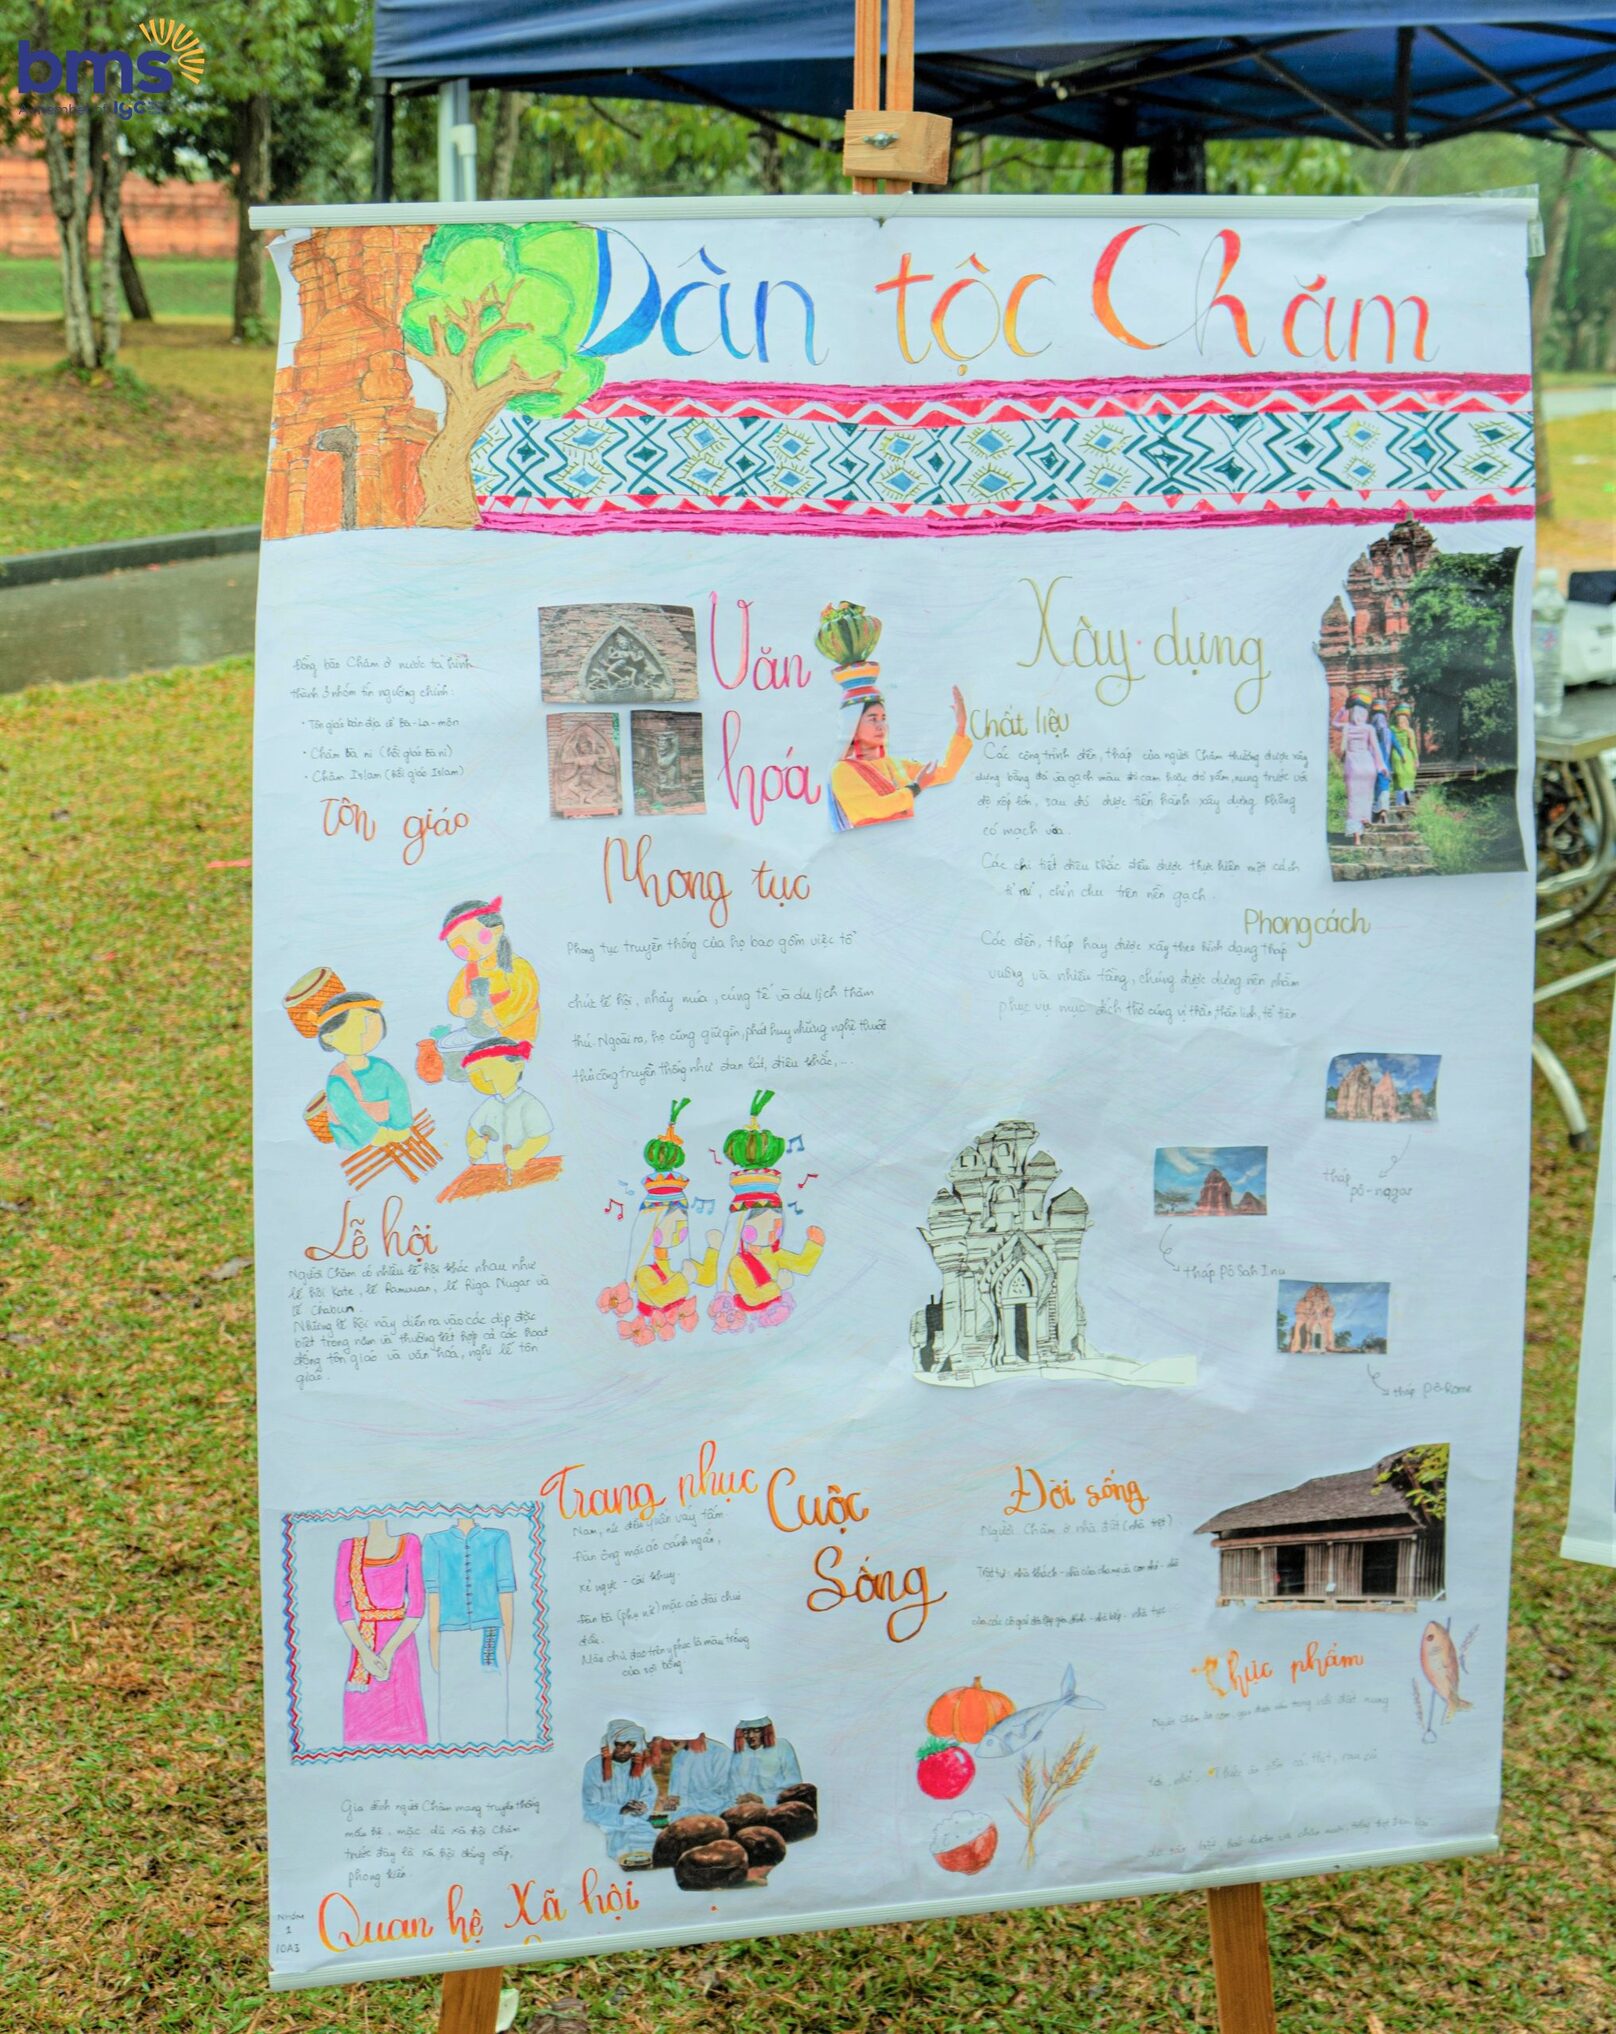 bms
Dân tộc Chăm
Đồng bào Chăm ở nước ta hình
thành 3 nhóm tín ngưỡng chính:
• Tôn giáo bản địa cũ Bà-La-môn
• Chăm Bà ni (hồi giáo Bà ni)
• Chăm Islam (hồi giáo Islam)
Tôn giáo
Văn
hóa
Phong tục
Phong tục truyền thống của họ bao gồm việc tổ
chức lễ hội, nhảy múa, cúng tế và du lịch thăm
thú. Ngoài ra, họ cũng giữ gìn, phát huy những nghề thuật
thủ công truyền thống như đan lát, điêu khắc,...
Xây dựng
Chất liệu
Các công trình đền, tháp của người Chăm thường được xây
dựng bằng đá và gạch màu đỏ cam hoặc đỏ sẫm, nung trước với
độ xốp lớn, sau đó được tiến hành xây dựng không
có mạch vữa.
Các chi tiết điêu khắc đều được thực hiện một cách
tỉ mỉ, chỉn chu trên nền gạch.
Phong cách
Các đền, tháp hay được xây theo hình dạng tháp
vuông và nhiều tầng, chúng được dựng nên nhằm
phục vụ mục đích thờ cúng vị thần, thần linh, tổ tiên.
tháp
pô-nagar
tháp Pô Sah Inu
tháp Pô-Rome
Lễ hội
Người Chăm có nhiều lễ hội khác nhau như
lễ hội Kate, lễ Ramuwan, lễ Riga Nugar và
lễ Chabun.
Những lễ hội này diễn ra vào các dịp đặc
biệt trong năm và thường kết hợp cả các hoạt
động tôn giáo và văn hóa, nghi lễ tôn
giáo.
Trang phục
Nam, nữ đều quấn váy tấm.
Đàn ông mặc áo cánh ngắn,
xẻ ngực - cài khuy.
Đàn bà (phụ nữ) mặc áo dài chui
đầu.
Màu chủ đạo trên y phục là màu trắng
của sợi bông
Cuộc
Sống
Đời sống
Người Chăm ở nhà đất (nhà trệt)
Trật tự: nhà khách - nhà của cha mẹ và con nhỏ -
Thực phẩm
Người Chăm ăn cơm, gạo được nấu trong nồi đất nung
cá, thịt, rau củ
Gia đình người Chăm mang truyền thống
mẫu hệ, mặc dù xã hội Chăm
trước đây là xã hội đẳng cấp,
phong kiến.
Quan hệ Xã hội
Nhóm
1
10A3